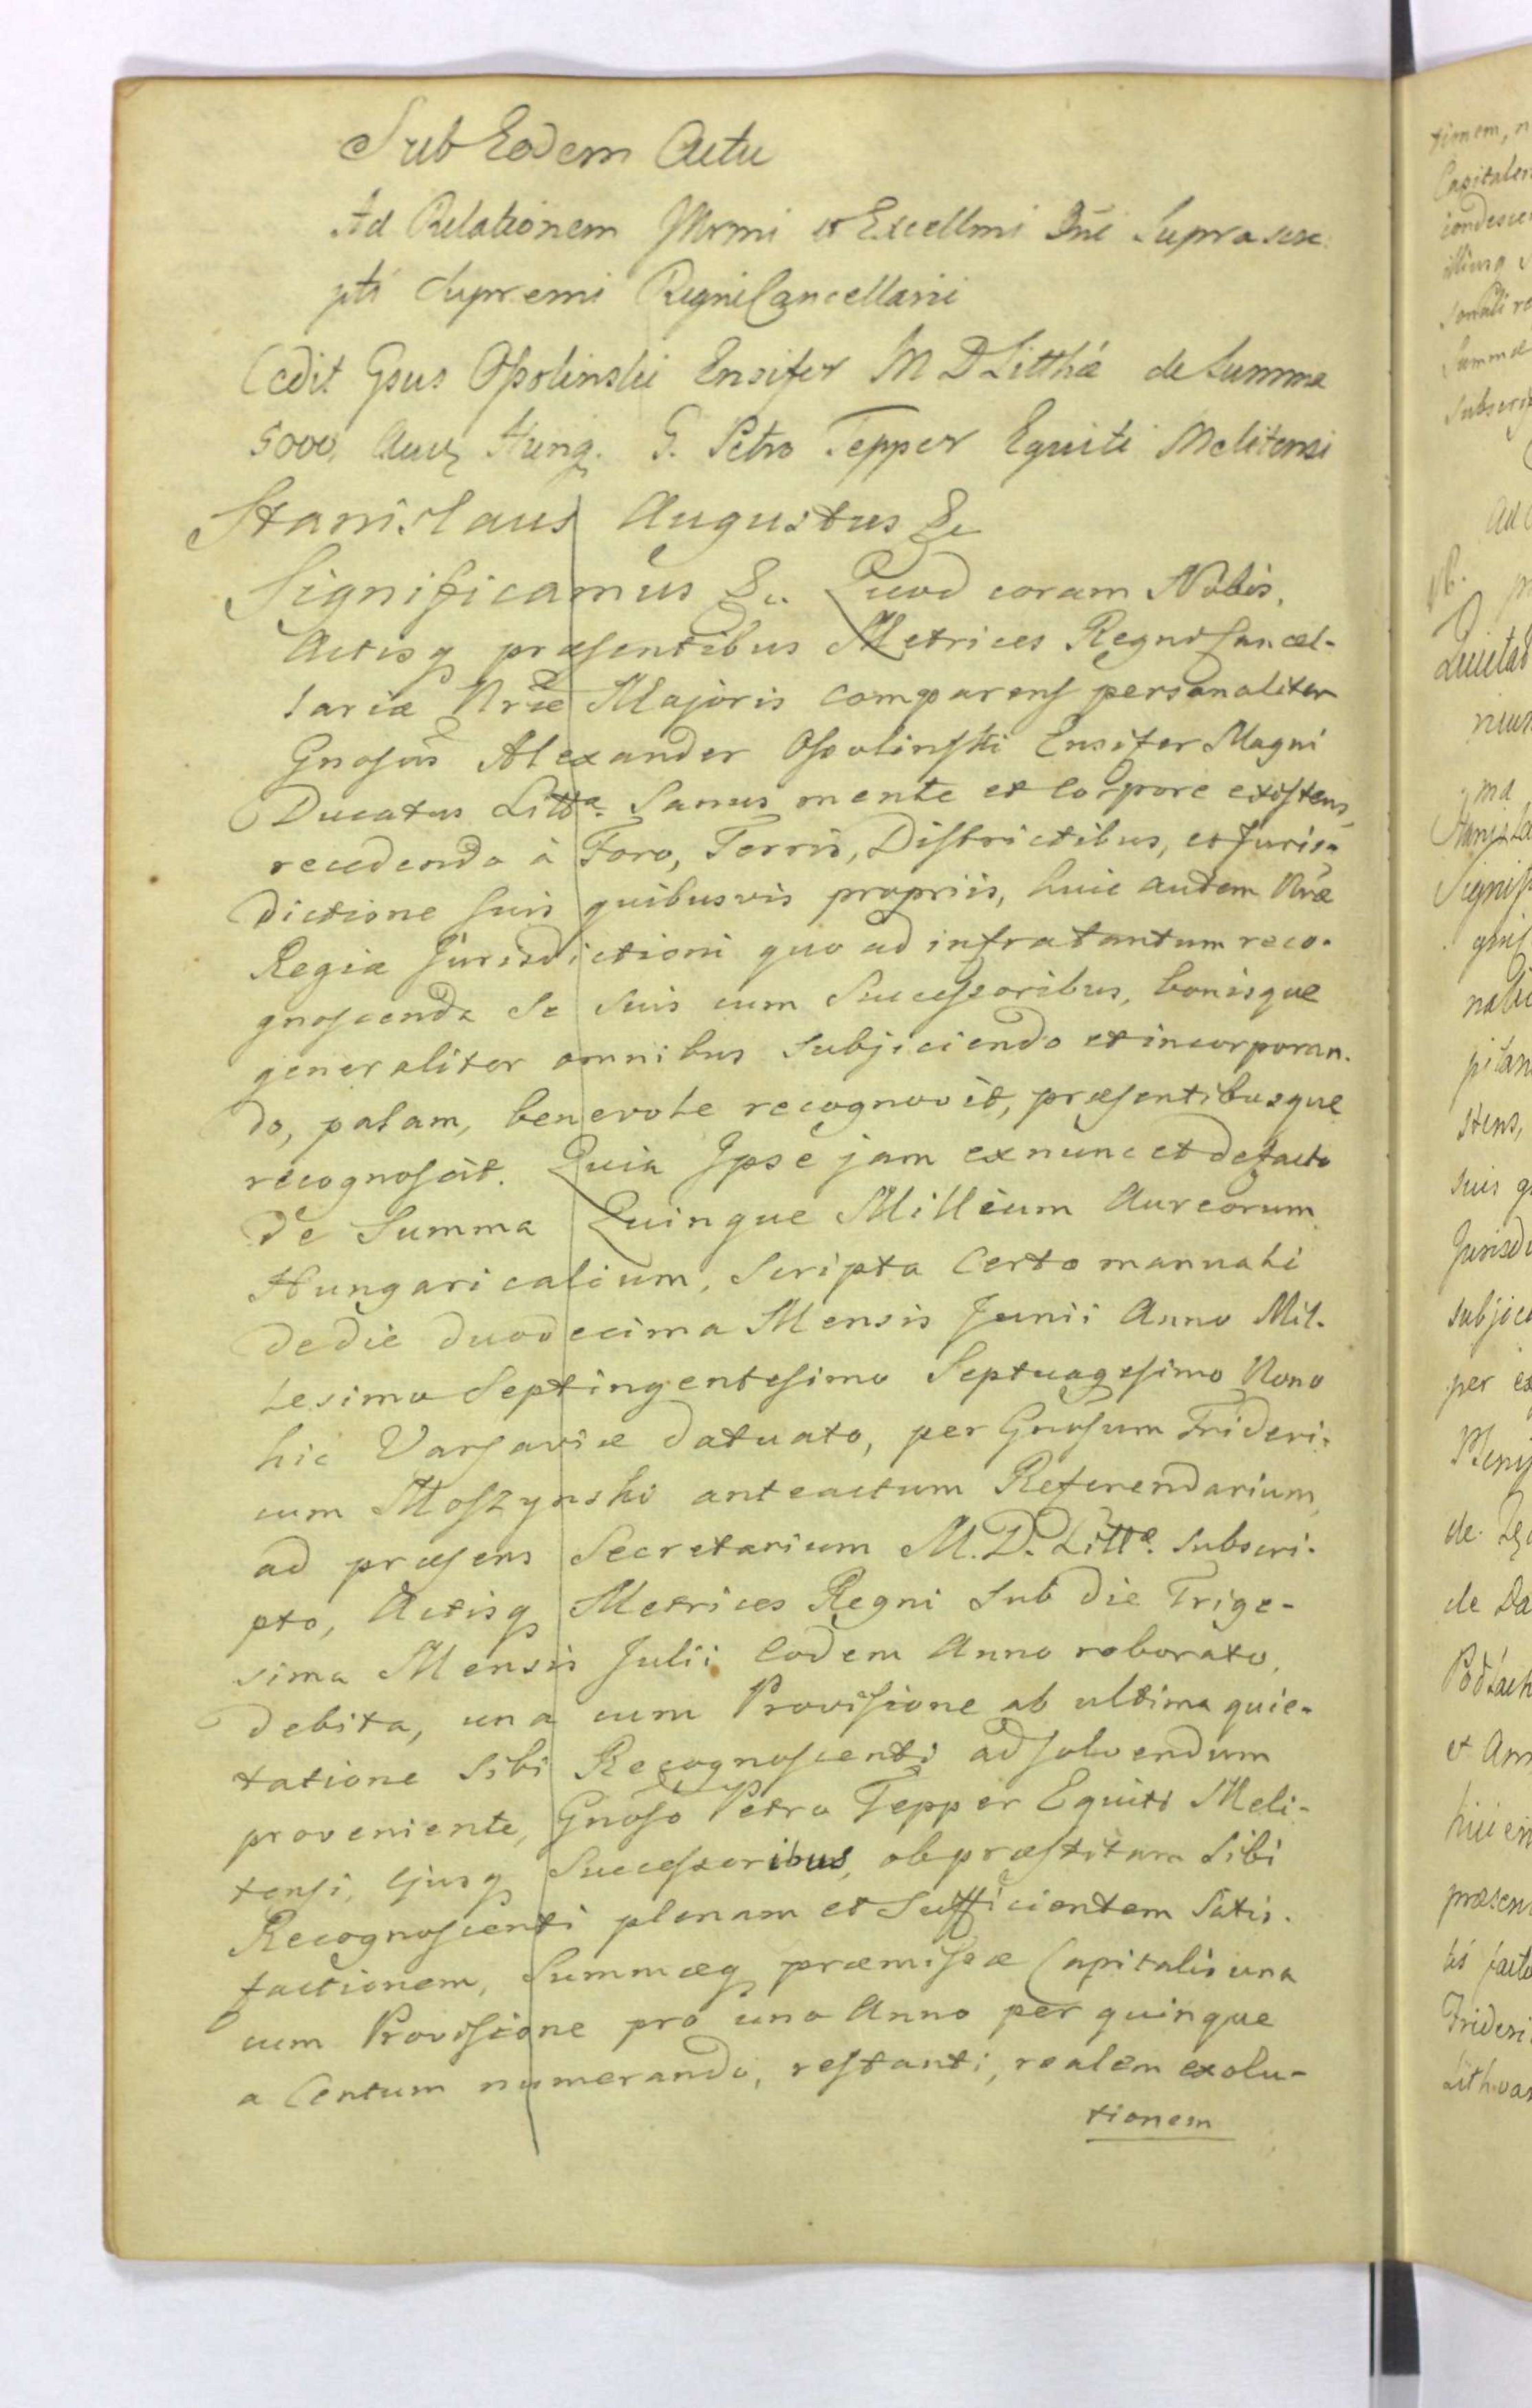 Sub Eodem Actu
Ad Relationem Illrmi et Excellmi Dni Suprascri
pti Supremi Regni Cancellarii
Cedit Gsus Opolinski Ensifer M D Litthã de Summa
5000, Aurz Hung. G. Petro Tepper Equiti Melitensi
Stanislaus Augustus &c
Significamus &c. Quod coram Nobis,
Actisq præsentibus Metrices Regni Cancel-
lariæ Nræ Majoris comparens personaliter
Gnosus Alexander Opolinski Ensifer Magni
Ducatus Littæ. Sanus mente et Corpore existens,
recedendo à Foro, Terris, Districtibus, et Juris-
dictione suis quibusvis propriis, huic autem Nræ
Regiæ Jurisdictioni quo ad infratantum reco-
gnoscenda se suis cum Successoribus, bonisque
generaliter omnibus subjiciendo et incorporan-
do, palam, benevole recognovit, præsentibusque
recognoscit. Quia Ipse jam exnunc et defacto
De Summa Quinque Millium Aureorum
Hungaricalium, Scripta Certo manuali
dedie duodecima Mensis Junii Anno Mil-
lesimo Septingentesimo Septuagesimo Nono
hic Varsaviæ datuato, per Gnosum Frideri-
cum Moszynski anteactum Referendarium,
ad præsens Secretarium M. D. Littæ. subscri-
pto, Actisq Metrices Regni Sub die Trige-
sima Mensis Julii Eodem Anno roborato,
debita, una cum Provisione ab ultima quie-
tatione Sibi Recognoscenti adsolvendum
proveniente, Gnoso Petro Tepper Equiti Meli-
tensi, Ejusq Successoribus, ob præstitam Sibi
Recognoscenti plenam et Sufficientem Satis-
factionem, Summæq præmissæ Capitalis una
cum Provisione pro uno Anno per quinque
a Centum numerando, restanti, realem exolu-
tionem